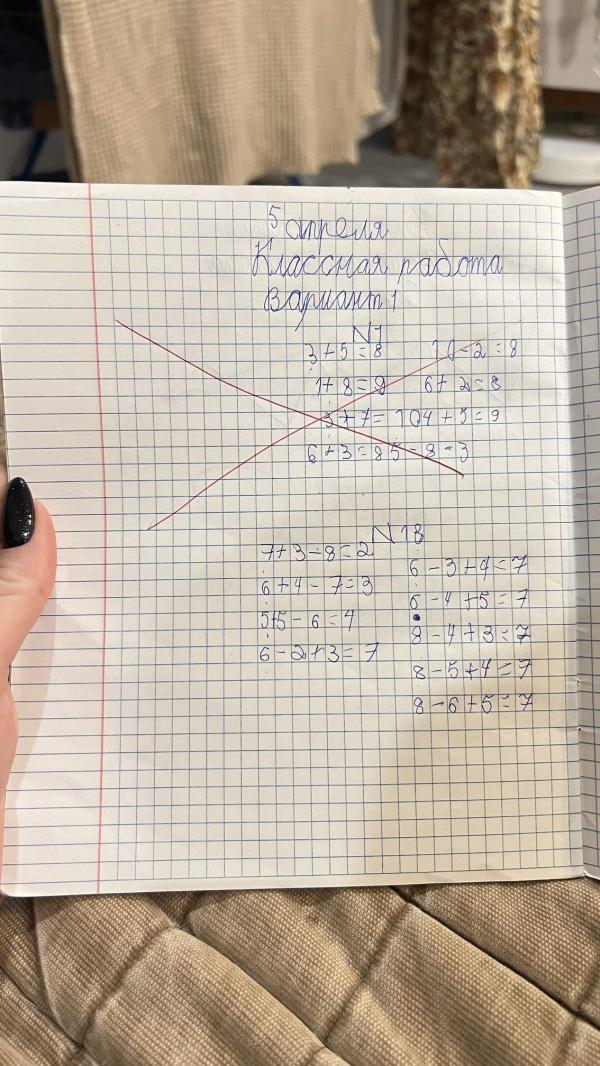 5 апреля
Классная работа
Вариант 1
N1
3+5=8 10-2=8
1+8=9 6+2=8
3+7=10 4+5=9
6+3=8 5-8-3
N 1В
7+3-8=2
6+4-7=3
5+5-6=4
6-2+3=7
6-3+4=7
6-4+5=7
8-4+3=7
8-5+4=7
8-6+5=7